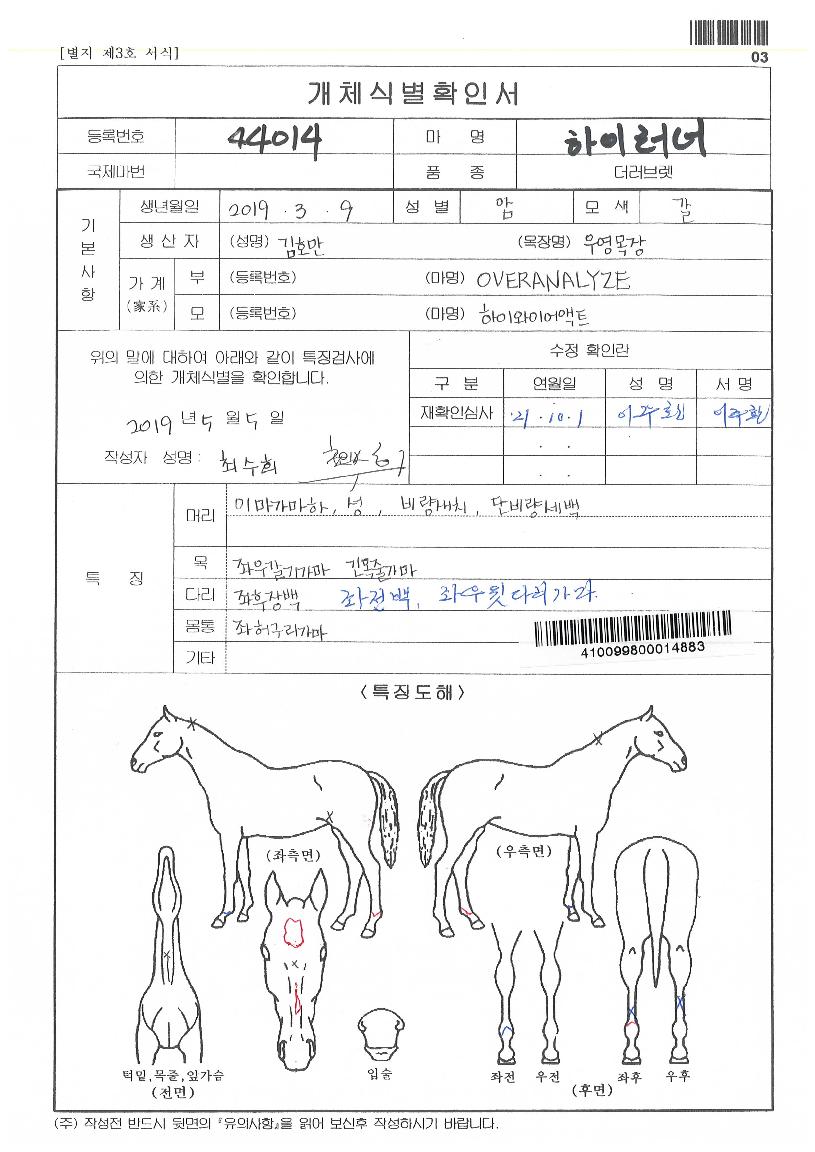 [별지 제3호 서식]
03
개체식별확인서
등록번호 44014 마 명 하이러너
국제마번 품 종 더러브렛
기본사항
생년월일 2019 . 3 . 9 성 별 암 모 색 갈
생 산 자 (성명) 김호만 (목장명) 우영목장
가 계 (家系)
부 (등록번호) (마명) OVERANALYZE
모 (등록번호) (마명) 하이와이어액트
위의 말에 대하여 아래와 같이 특징검사에
의한 개체식별을 확인합니다.
2019 년 5 월 5 일
작성자 성명 : 최수희
수정 확인란
구 분 연월일 성 명 서 명
재확인심사 '21 . 10 . 1
. .
. .
특 징
머리 이마가마하, 성, 비량새치, 단비량세백
목 좌우갈기가마 긴목줄가마
다리 좌후장백 좌전백, 좌우뒷다리가마
몸통 좌허구리가마
기타
410099800014883
<특징도해>
(좌측면) (우측면)
턱밑,목줄,앞가슴
(전면)
입술
좌전 우전 좌후 우후
(후면)
(주) 작성전 반드시 뒷면의 『유의사항』을 읽어 보신후 작성하시기 바랍니다.